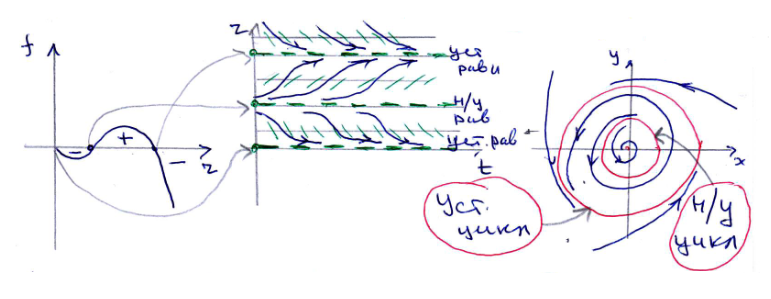 f
+
-
-
z
z
уст
равн
н/у
рав
уст. рав
t
y
x
Уст.
цикл
н/у
цикл